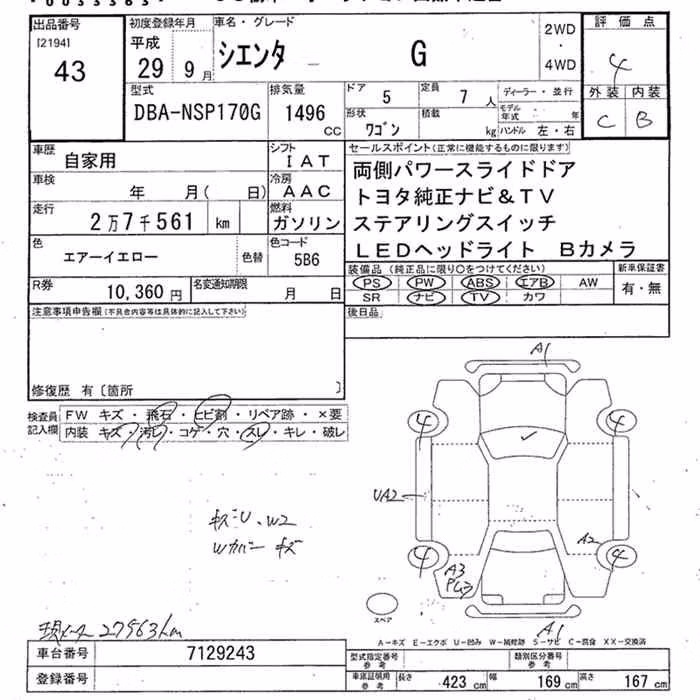 出品番号 初度登録年月 車名・グレード 2WD 評価点
[2194] 平成 シエンタ G ・ 4
43 29年 9月 4WD 外装 内装
型式 排気量 ドア 5 定員 7人 ディーラー・並行 C B
DBA-NSP170G 1496 CC 形状 ワゴン 積載 kg モデル年式 年
ハンドル 左・右
車歴 自家用 シフト IAT セールスポイント(正常に機能するものに限ります)
車検 年 月( 日) 冷房 AAC 両側パワースライドドア
走行 2万7千561 km 燃料 ガソリン トヨタ純正ナビ&TV
色 エアーイエロー 色替 色コード 5B6 ステアリングスイッチ
LEDヘッドライト Bカメラ
R券 10,360円 名変通知期限 月 日 装備品(純正品に限り○をつけてください) 新車保証書
PS PW ABS エアB AW 有・無
SR ナビ TV カワ
注意事項申告欄(不具合内容等は具体的に記入して下さい) 後日品
修復歴 有〔箇所 〕
検査員記入欄 FW キズ・飛石・ヒビ割・リペア跡・×要
内装 キズ・汚レ・コゲ・穴・スレ・キレ・破レ
A1
4 4
UA2
キズ U、W2
Wカバー キズ
A2
4 4
A3
スペア
A1
現メーター 27563km
A-キズ E-エクボ U-凹み W-補修跡 S-サビ C-腐食 XX-交換済
車台番号 7129243 型式指定番号 参考 類別区分番号 参考
登録番号 車庫証明用 参考 長さ 423cm 幅 169cm 高さ 167cm